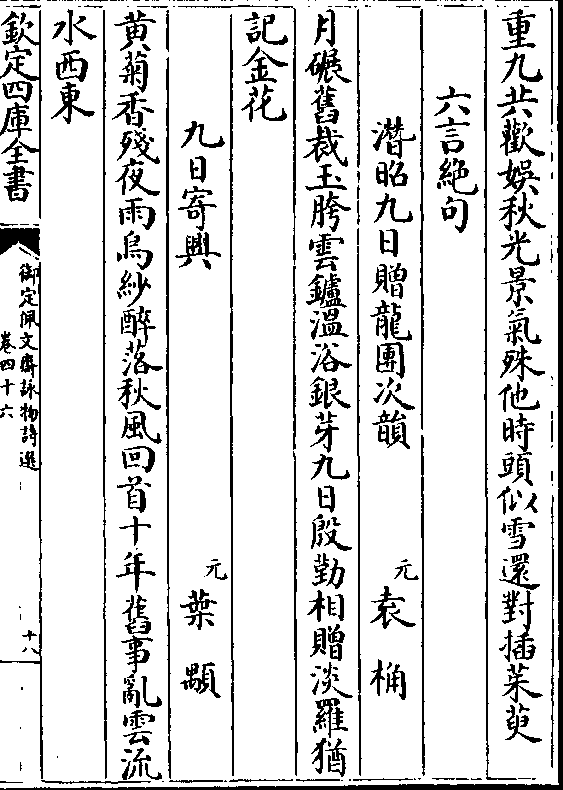 重九共歡娛秋光景氣殊他時頭似雪還對插茱萸
六言絕句
潛昭九日贈龍團次韻 元 袁桷
月碾舊裁玉胯雲鑪溫浴銀芽九日殷勤相贈淡羅猶
記金花
九日寄興 元 葉顒
黄菊香殘夜雨烏紗醉落秋風回首十年舊事亂雲流
水西東
欽定四庫全書
御定佩文齋詠物詩選
卷四十六
十八